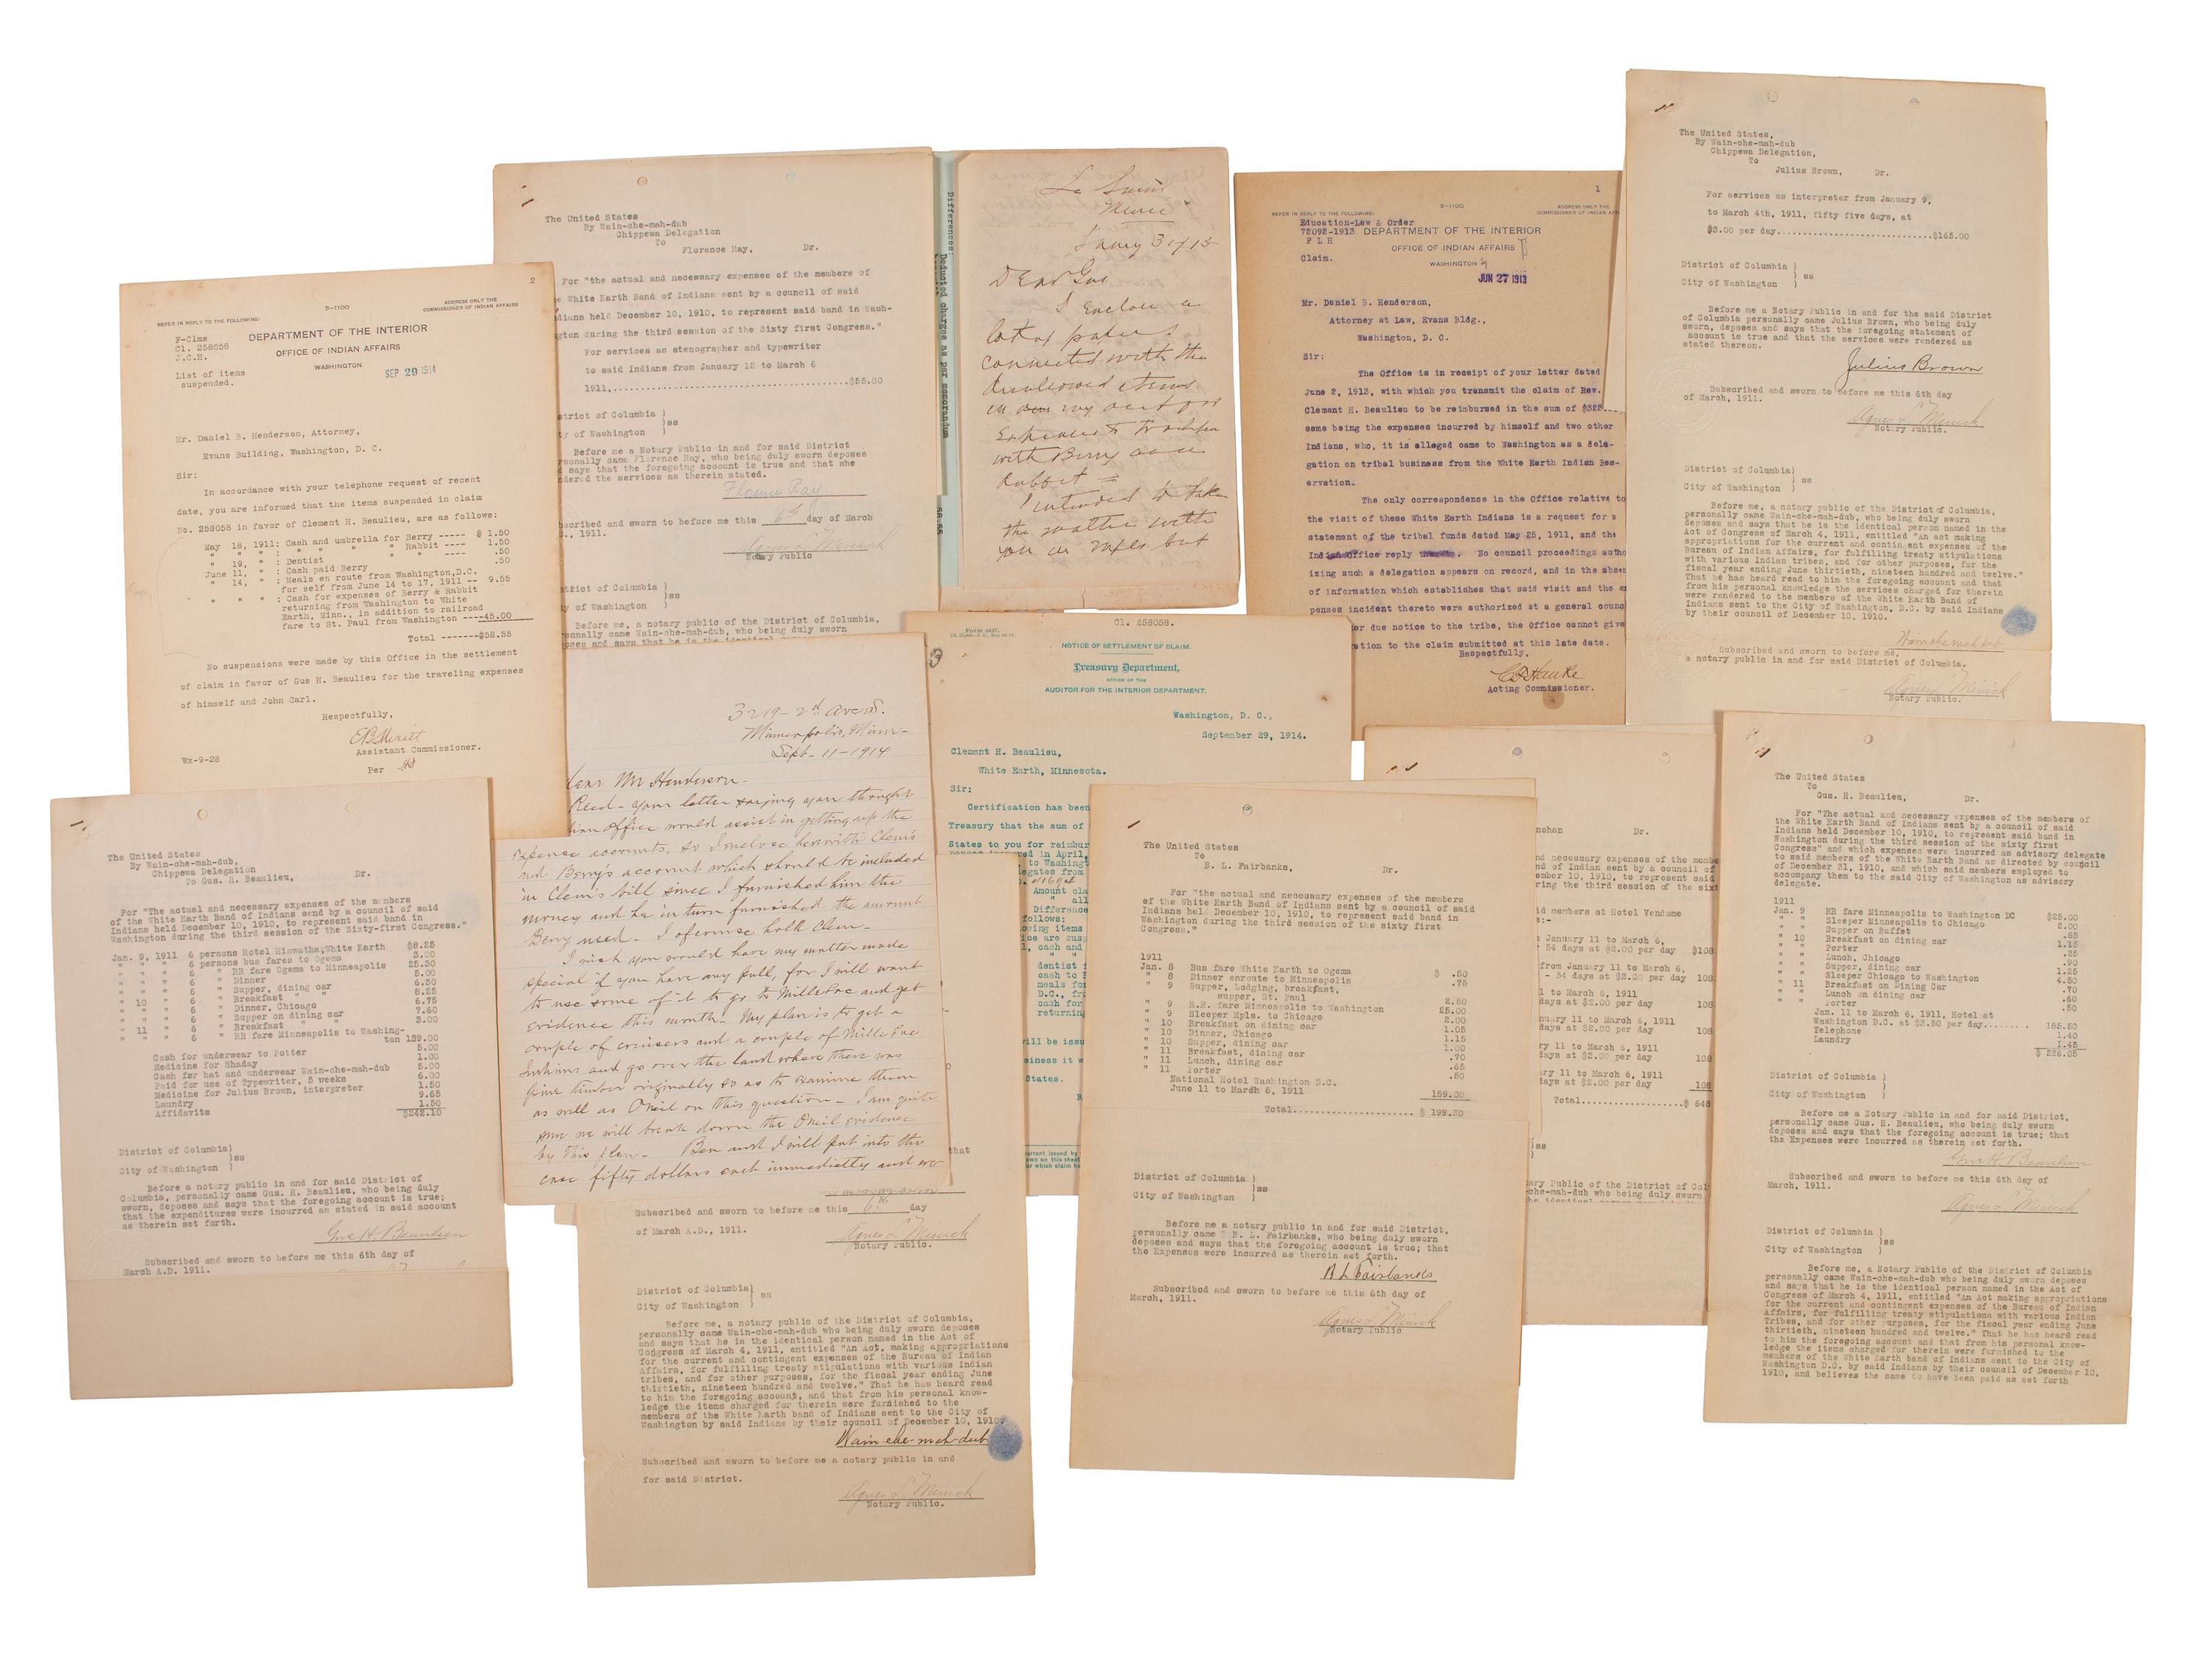 2
REFER IN REPLY TO THE FOLLOWING:
5-1100
ADDRESS ONLY THE
COMMISSIONER OF INDIAN AFFAIRS
DEPARTMENT OF THE INTERIOR
OFFICE OF INDIAN AFFAIRS
WASHINGTON
F-Clms
Cl. 258058
J.C.H.
List of items
suspended.
SEP 29 1914
Mr. Daniel B. Henderson, Attorney,
Evans Building, Washington, D. C.
Sir:
In accordance with your telephone request of recent
date, you are informed that the items suspended in claim
No. 258058 in favor of Clement H. Beaulieu, are as follows:
May 18, 1911: Cash and umbrella for Berry ----- $ 1.50
" " " : " " " " Rabbit ---- 1.50
" 19, " : Dentist ---- .50
June 11, " : Cash paid Berry .50
" 14, " : Meals en route from Washington,D.C.
for self from June 14 to 17, 1911 -- 9.55
" " " : Cash for expenses of Berry & Rabbit
returning from Washington to White
Earth, Minn., in addition to railroad
fare to St. Paul from Washington ----45.00
Total -------$58.55
No suspensions were made by this Office in the settlement
of claim in favor of Gus H. Beaulieu for the traveling expenses
of himself and John Carl.
Respectfully,
Assistant Commissioner.
Wx-9-28
Per
The United States
By Wain-che-mah-dub
Chippewa Delegation
To
Florence Ray, Dr.
For "the actual and necessary expenses of the members of
White Earth Band of Indians sent by a council of said
dians held December 10, 1910, to represent said band in Wash-
gton during the third session of the Sixty first Congress."
For services as stenographer and typewriter
to said Indians from January 12 to March 6
1911,..............................$55.00
strict of Columbia )
)ss
ty of Washington )
Before me a Notary Public in and for said District
rsonally came Florence Ray, who being duly sworn deposes
d says that the foregoing account is true and that she
ndered the services as therein stated.
Florence Ray
scribed and sworn to before me this 6th day of March
., 1911.
Agnes L Minick
Notary Public
strict of Columbia )
)ss
ty of Washington )
Before me, a notary public of the District of Columbia,
ersonally came Wain-che-mah-dub, who being duly sworn
Differences: Deducted charges as per memorandum
58.55
Dear Gus
I enclose a
lot of papers
connected with the
disallowed items
in my acct for
Expenses to Washington
with Berry and
Rabbit =
I intended to take
the matter with
you at Mpls but
1
REFER IN REPLY TO THE FOLLOWING:
5-1100
ADDRESS ONLY THE
COMMISSIONER OF INDIAN AFF
Education-Law & Order
72092-1913
P L H
Claim.
DEPARTMENT OF THE INTERIOR
OFFICE OF INDIAN AFFAIRS
WASHINGTON
JUN 27 1913
Mr. Daniel B. Henderson,
Attorney at Law, Evans Bldg.,
Washington, D. C.
Sir:
The Office is in receipt of your letter dated
June 2, 1913, with which you transmit the claim of Rev.
Clement H. Beaulieu to be reimbursed in the sum of $322
same being the expenses incurred by himself and two other
Indians, who, it is alleged came to Washington as a dele-
gation on tribal business from the White Earth Indian Res-
ervation.
The only correspondence in the Office relative to
the visit of these White Earth Indians is a request for a
statement of the tribal funds dated May 25, 1911, and the
Indian Office reply No council proceedings autho
izing such a delegation appears on record, and in the absen
of information which establishes that said visit and the ex
penses incident thereto were authorized at a general counc
er due notice to the tribe, the Office cannot give
ation to the claim submitted at this late date.
Respectfully,
Acting Commissioner.
The United States,
By Wain-che-mah-dub
Chippewa Delegation,
To
Julius Brown, Dr.
For services as interpreter from January 9,
to March 4th, 1911, fifty five days, at
$3.00 per day..............................$165.00
District of Columbia )
) ss
City of Washington )
Before me a Notary Public in and for the said District
of Columbia personally came Julius Brown, who being duly
sworn, deposes and says that the foregoing statement of
account is true and that the services were rendered as
stated thereon.
Julius Brown
Subscribed and sworn to before me this 6th day
of March, 1911.
Agnes L Minick
Notary Public.
District of Columbia)
) ss
City of Washington )
Before me, a notary public of the District of Columbia,
personally came Wain-che-mah-dub, who being duly sworn
deposes and says that he is the identical person named in the
Act of Congress of March 4, 1911, entitled "An act making
appropriations for the current and contingent expenses of the
Bureau of Indian Affairs, for fulfilling treaty stipulations
with various Indian tribes, and for other purposes, for the
fiscal year ending June thirtieth, nineteen hundred and twelve."
That he has heard read to him the foregoing account and that
from his personal knowledge the services charged for therein
were rendered to the members of the White Earth Band of
Indians sent to the City of Washington, D.C. by said Indians
by their council of December 10, 1910.
Wain che mah dub
Subscribed and sworn to before me,
a notary public in and for said District of Columbia.
Agnes L Minick
Notary Public.
3219-2d Ave S.
Minneapolis, Minn-
Sept- 11-1914
Dear Mr Henderson-
Recd- your letter saying you thought
Indian Office would assist in getting up the
expense accounts, so I enclose herewith Clem's
and Berry's account which should be included
in Clem's bill since I furnished him the
money and he in turn furnished the amount
Berry used- I of course hold Clem-
I wish you would have my matter made
special if you have any pull, for I will want
to use some of it to go to Mille Lac and get
evidence this month- My plan is to get a
couple of cruisers and a couple of Mille Lac
Indians and go over the land where there was
pine timber originally so as to examine them
as well as Oneil on this question- I am quite
sure we will break down the Oneil evidence
by this plan- Ben and I will put into the
case fifty dollars each immediatly and we
Cl. 258058.
NOTICE OF SETTLEMENT OF CLAIM.
Treasury Department,
OFFICE OF THE
AUDITOR FOR THE INTERIOR DEPARTMENT.
Washington, D. C.,
September 29, 1914.
Clement H. Beaulieu,
White Earth, Minnesota.
Sir:
Certification has been
Treasury that the sum of
States to you for reimbur
red in April,
to Washingt
legates from
Amount cla
" all
Difference
follows:
owing items
ice are susp
l, cash and
dentist f
cash to B
meals for
D.C., fro
cash for
returning
will be issu
siness it w
States.
The United States
By Wain-che-mah-dub,
Chippewa Delegation
To Gus. H. Beaulieu, Dr.
For "The actual and necessary expenses of the members
of the White Earth Band of Indians send by a council of said
Indians held December 10, 1910, to represent said band in
Washington during the third session of the Sixty-first Congress."
Jan. 9, 1911 6 persons Hotel Hiawatha,White Earth $8.25
" " " 6 persons bus fares to Ogema 3.00
" " " 6 " RR fare Ogema to Minneapolis 25.30
" " " 6 " Dinner 5.00
" " " 6 " Supper, dining car 6.30
" 10 " 6 " Breakfast " " 8.25
" " " 6 " Dinner, Chicago 6.75
" " " 6 " Supper on dining car 7.60
" 11 " 6 " Breakfast " " 3.00
" " " 6 " RR fare Minneapolis to Washing-
ton 139.00
Cash for underwear to Potter 5.00
Medicine for Shaday 1.00
Cash for hat and underwear Wain-che-mah-dub 5.00
Paid for use of Typewriter, 5 weeks 6.00
Medicine for Julius Brown, interpreter 1.50
Laundry 9.65
Affidavits 1.50
$242.10
District of Columbia)
)ss
City of Washington )
Before a notary public in and for said District of
Columbia, personally came Gus. H. Beaulieu, who being duly
sworn, deposes and says that the foregoing account is true;
that the expenditures were incurred as stated in said account
as therein set forth.
Gus H. Beaulieu
Subscribed and sworn to before me this 6th day of
March A.D. 1911.
Subscribed and sworn to before me this 6th day
of March A.D., 1911.
Agnes L Minick
Notary Public.
District of Columbia)
) ss
City of Washington )
Before me, a notary public of the District of Columbia,
personally came Wain-che-mah-dub who being duly sworn deposes
and says that he is the identical person named in the Act of
Congress of March 4, 1911, entitled "An Act, making appropriations
for the current and contingent expenses of the Bureau of Indian
Affairs, for fulfilling treaty stipulations with various Indian
tribes, and for other purposes, for the fiscal year ending June
thirtieth, nineteen hundred and twelve." That he has heard read
to him the foregoing account, and that from his personal know-
ledge the items charged for therein were furnished to the
members of the White Earth band of Indians sent to the City of
Washington by said Indians by their council of December 10, 1910.
Wain-che-mah-dub
Subscribed and sworn to before me a notary public in and
for said District.
Agnes L Minick
Notary Public.
The United States
To
B. L. Fairbanks, Dr.
For "the actual and necessary expenses of the members
of the White Earth Band of Indians sent by a council of said
Indians held December 10, 1910, to represent said band in
Washington during the third session of the sixty first
Congress."
1911
Jan. 8 Bus fare White Earth to Ogema $ .50
" 8 Dinner enroute to Minneapolis .75
" 9 Supper, Lodging, breakfast,
supper, St. Paul 2.50
" 9 R.R. fare Minneapolis to Washington 25.00
" 9 Sleeper Mpls. to Chicago 2.00
" 10 Breakfast on dining car 1.05
" 10 Dinner, Chicago 1.15
" 10 Supper, dining car 1.00
" 11 Breakfast, dining car .70
" 11 Lunch, dining car .65
" 11 Porter .50
National Hotel Washington D.C.
June 11 to March 6, 1911 159.00
Total.................... $ 199.30
District of Columbia )
)ss
City of Washington )
Before me a notary public in and for said District,
personally came B. L. Fairbanks, who being duly sworn
deposes and says that the foregoing account is true; that
the Expenses were incurred as therein set forth.
B L Fairbanks
Subscribed and sworn to before me this 6th day of
March, 1911.
Agnes L Minick
Notary Public
nohan Dr.
nd necessary expenses of the membe
of Indian sent by a council of
ember 10, 1910, to represent said
ring the third session of the sixt
id members at Hotel Vendome
January 11 to March 6,
days at $2.00 per day $108
from January 11 to March 6,
- 54 days at $2.00 per day 108
1 to March 6, 1911
days at $2.00 per day 108
nuary 11 to March 6, 1911
days at $2.00 per day 108
ry 11 to March 6, 1911
days at $2.00 per day 108
ary 11 to March 6, 1911
days at $2.00 per day 108
Total..............$ 648
)ss
ary Public of the District of Col
-che-mah-dub who being duly sworn
The United States
To
Gus. H. Beaulieu, Dr.
For "The actual and necessary expenses of the members of
the White Earth Band of Indians sent by a council of said
Indians held December 10, 1910, to represent said band in
Washington during the third session of the sixty first
Congress" and which expenses were incurred as advisory delegate
to said members of the White Earth Band as directed by council
of December 31, 1910, and which said members employed to
accompany them to the said City of Washington as advisory
delegate.
1911
Jan. 9 RR fare Minneapolis to Washington DC $25.00
" " Sleeper Minneapolis to Chicago 2.00
" " Supper on Buffet .85
" 10 Breakfast on dining car 1.15
" " Porter .25
" " Lunch, Chicago .90
" " Supper, dining car 1.25
" " Sleeper Chicago to Washington 4.50
" 11 Breakfast on Dining Car .70
" " Lunch on dining car .60
" " Porter .50
Jan. 11 to March 6, 1911, Hotel at
Washington D.C. at $3.50 per day........ 185.50
Telephone 1.40
Laundry 1.45
$ 226.05
District of Columbia )
)ss
City of Washington )
Before me a Notary Public in and for said District,
personally came Gus. H. Beaulieu, who being duly sworn
deposes and says that the foregoing account is true; that
the Expenses were incurred as therein set forth.
Gus H. Beaulieu
Subscribed and sworn to before me this 6th day of
March, 1911.
Agnes L Minick
District of Columbia )
)ss
City of Washington )
Before me, a Notary Public of the District of Columbia
personally came Wain-che-mah-dub who being duly sworn deposes
and says that he is the identical person named in the Act of
Congress of March 4, 1911, entitled "An Act making appropriations
for the current and contingent expenses of the Bureau of Indian
Affairs, for fulfilling treaty stipulations with various Indian
Tribes, and for other purposes, for the fiscal year ending June
thirtieth, nineteen hundred and twelve." That he has heard read
to him the foregoing account and that from his personal know-
ledge the items charged for therein were furnished to the
members of the White Earth band of Indians sent to the City of
Washington D.C. by said Indians by their council of December 10,
1910, and believes the same to have been paid as set forth